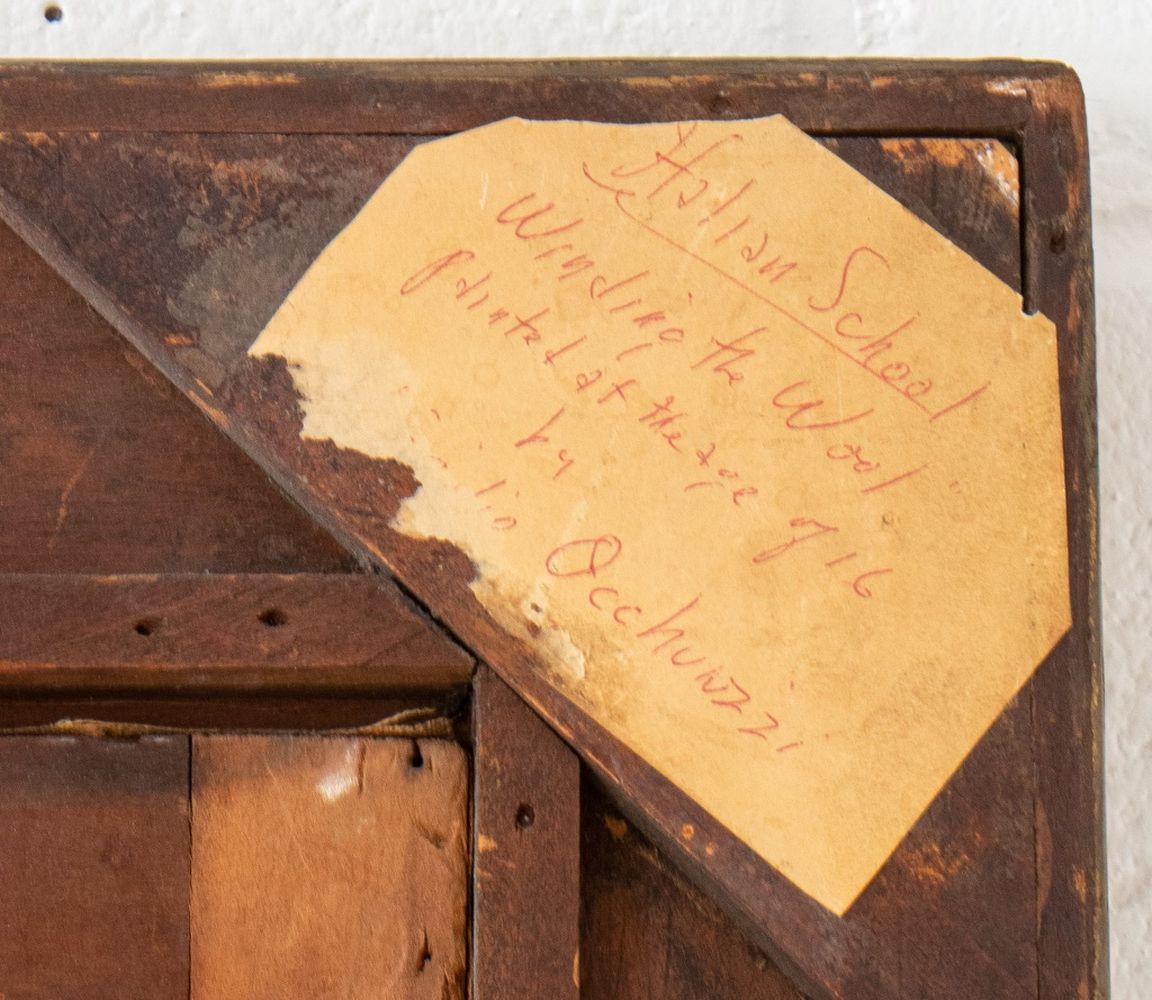 Italian School
Winding the Wool"
painted at the age of 16
by
lio Occhiuzzi